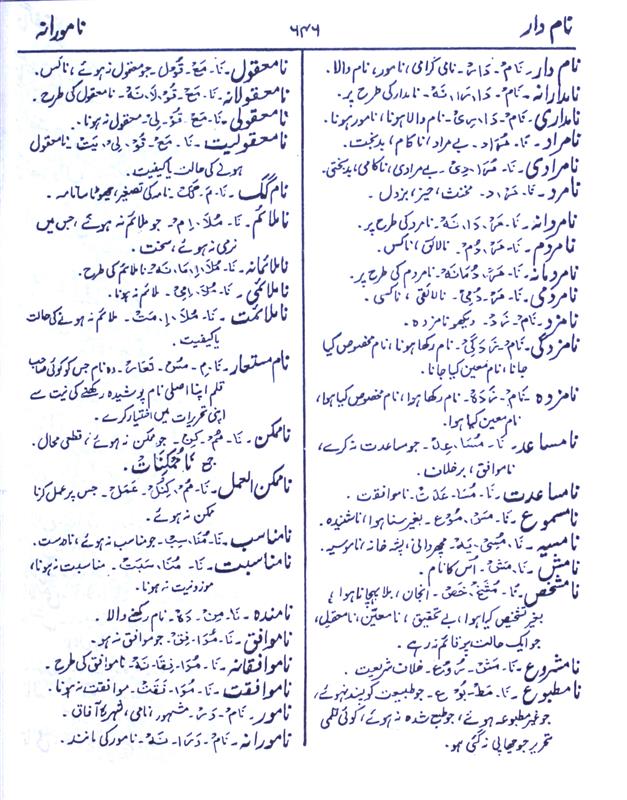 نام دار
۶۴۶
نامورانہ
نام دار۔ نَامْ۔ دَارْ۔ نامی گرامی، نامور، نام والا۔
نامدارانہ۔ نَامْ۔ دَا۔ رَا۔ نَہْ۔ نامدار کی طرح پر۔
نامداری۔ نَامْ۔ دَا۔ رِیْ۔ نام والا ہونا، نامور ہونا۔
نامراد۔ نَا۔ مُرَادْ۔ بے مراد، ناکام، بدبخت۔
نامرادی۔ نَا۔ مُرَا۔ دِیْ۔ بے مرادی، ناکامی، بدبختی۔
نامرد۔ نَا۔ مَرْ۔ د۔ مخنث، حیز، بزدل۔
نامردانہ۔ نَا۔ مَرْ۔ دَا۔ نَہْ۔ نامرد کی طرح پر۔
نامردم۔ نَا۔ مَرْ۔ دُمْ۔ نالائق، ناکس۔
نامردمانہ۔ نَا۔ مَرْ۔ دُمَانَہْ۔ نامردم کی طرح پر۔
نامردمی۔ نَا۔ مَرْ۔ دُمِیْ۔ نالائقی، ناکسی۔
نامزد۔ نَامْ۔ زَدْ۔ دیکھو نامزدہ۔
نامزدگی۔ نَامْ۔ زَدَگِیْ۔ نام رکھا ہونا، نام مخصوص کیا
جانا، نام معین کیا جانا۔
نامزدہ۔ نَامْ۔ زَدَہْ۔ نام رکھا ہوا، نام مخصوص کیا ہوا،
نام معین کیا ہوا۔
نامساعد۔ نَا۔ مُسَا۔ عِدْ۔ جو مساعدت نہ کرے،
ناموافق، برخلاف۔
نامساعدت۔ نَا۔ مُسَا۔ عَدَتْ۔ ناموافقت۔
نامسموع۔ نَا۔ مَسْ۔ مُوْع۔ بغیر سنا ہوا، ناشنیدہ۔
نامسیہ۔ نَا۔ مُسِیْ۔ یَہْ۔ مچھر دانی، پشہ خانہ، ناموسیہ۔
نامش۔ نَا۔ مَشْ۔ اُس کا نام۔
نامشخص۔ نَا۔ مُشَخْ۔ خَصْ۔ انجان، بلا پہچانا ہوا،
بغیر تشخیص کیا ہوا، بے تحقیق، نامعین، نامعقیل،
جو ایک حالت پر قائم نہ رہے۔
نامشروع۔ نَا۔ مَشْ۔ رُوْع۔ خلاف شریعت۔
نامطبوع۔ نَا۔ مَطْ۔ بُوْع۔ جو طبیعت کو پسند نہ ہوئے،
جو غیر مطبوعہ ہوئے، جو طبع شدہ نہ ہوئے، کوئی قلمی
تحریر جو چھاپی نہ گئی ہو۔
نامعقول۔ نَا۔ مَعْ۔ قُوْل۔ جو معقول نہ ہوئے، نالس۔
نامعقولانہ۔ نَا۔ مَعْ۔ قُوْ۔ لَا۔ نَہْ۔ نامعقول کی طرح۔
نامعقولی۔ نَا۔ مَعْ۔ قُوْ۔ لِیْ۔ معقول نہ ہونا۔
نامعقولیت۔ نَا۔ مَعْ۔ قُوْ۔ لِیْ۔ یَتْ۔ نامعقول
ہونے کی حالت یا کیفیت۔
نامک۔ نَا۔ مَکْ۔ نامہ کی تصغیر، چھوٹا سا نامہ۔
ناملائم۔ نَا۔ مُلَا۔ اِمْ۔ جو ملائم نہ ہوئے، جس میں
نرمی نہ ہوئے، سخت۔
ناملائمانہ۔ نَا۔ مُلَا۔ اِمَا۔ نَہْ۔ ناملائم کی طرح۔
ناملائمی۔ نَا۔ مُلَا۔ اِمِیْ۔ ملائم نہ ہونا۔
ناملائمت۔ نَا۔ مُلَا۔ اِمَتْ۔ ملائم نہ ہونے کی حالت
یا کیفیت۔
نام مستعار۔ نَا۔ مِ۔ مُسْ۔ تَعَارْ۔ وہ نام جس کو کوئی صاحب
قلم اپنا اصلی نام پوشیدہ رکھنے کی نیت سے
اپنی تحریرات میں اختیار کرے۔
ناممکن۔ نَا۔ مُمْ۔ کِنْ۔ جو ممکن نہ ہوئے، قطعی محال۔
جمع نَامُمْکِنَاتْ۔
ناممکن العمل۔ نَا۔ مُمْ۔ کِنُلْ۔ عَمَلْ۔ جس پر عمل کرنا
ممکن نہ ہوئے۔
نامناسب۔ نَا۔ مُنَا۔ سِبْ۔ جو مناسب نہ ہوئے، نادرست۔
نامناسبت۔ نَا۔ مُنَا۔ سَبَتْ۔ مناسبت نہ ہونا،
موزونیت نہ ہونا۔
نامندہ۔ نَا۔ مِنْ۔ دَہْ۔ نام رکھنے والا۔
ناموافق۔ نَا۔ مُوَا۔ فِقْ۔ جو موافق نہ ہو۔
ناموافقانہ۔ نَا۔ مُوَا۔ فِقَا۔ نَہْ۔ ناموافق کی طرح۔
ناموافقت۔ نَا۔ مُوَا۔ فَقَتْ۔ موافقت نہ ہونا۔
نامور۔ نَامْ۔ وَرْ۔ مشہور، نامی، شہرہ آفاق۔
نامورانہ۔ نَامْ۔ وَرَا۔ نَہْ۔ نامور کی مانند۔